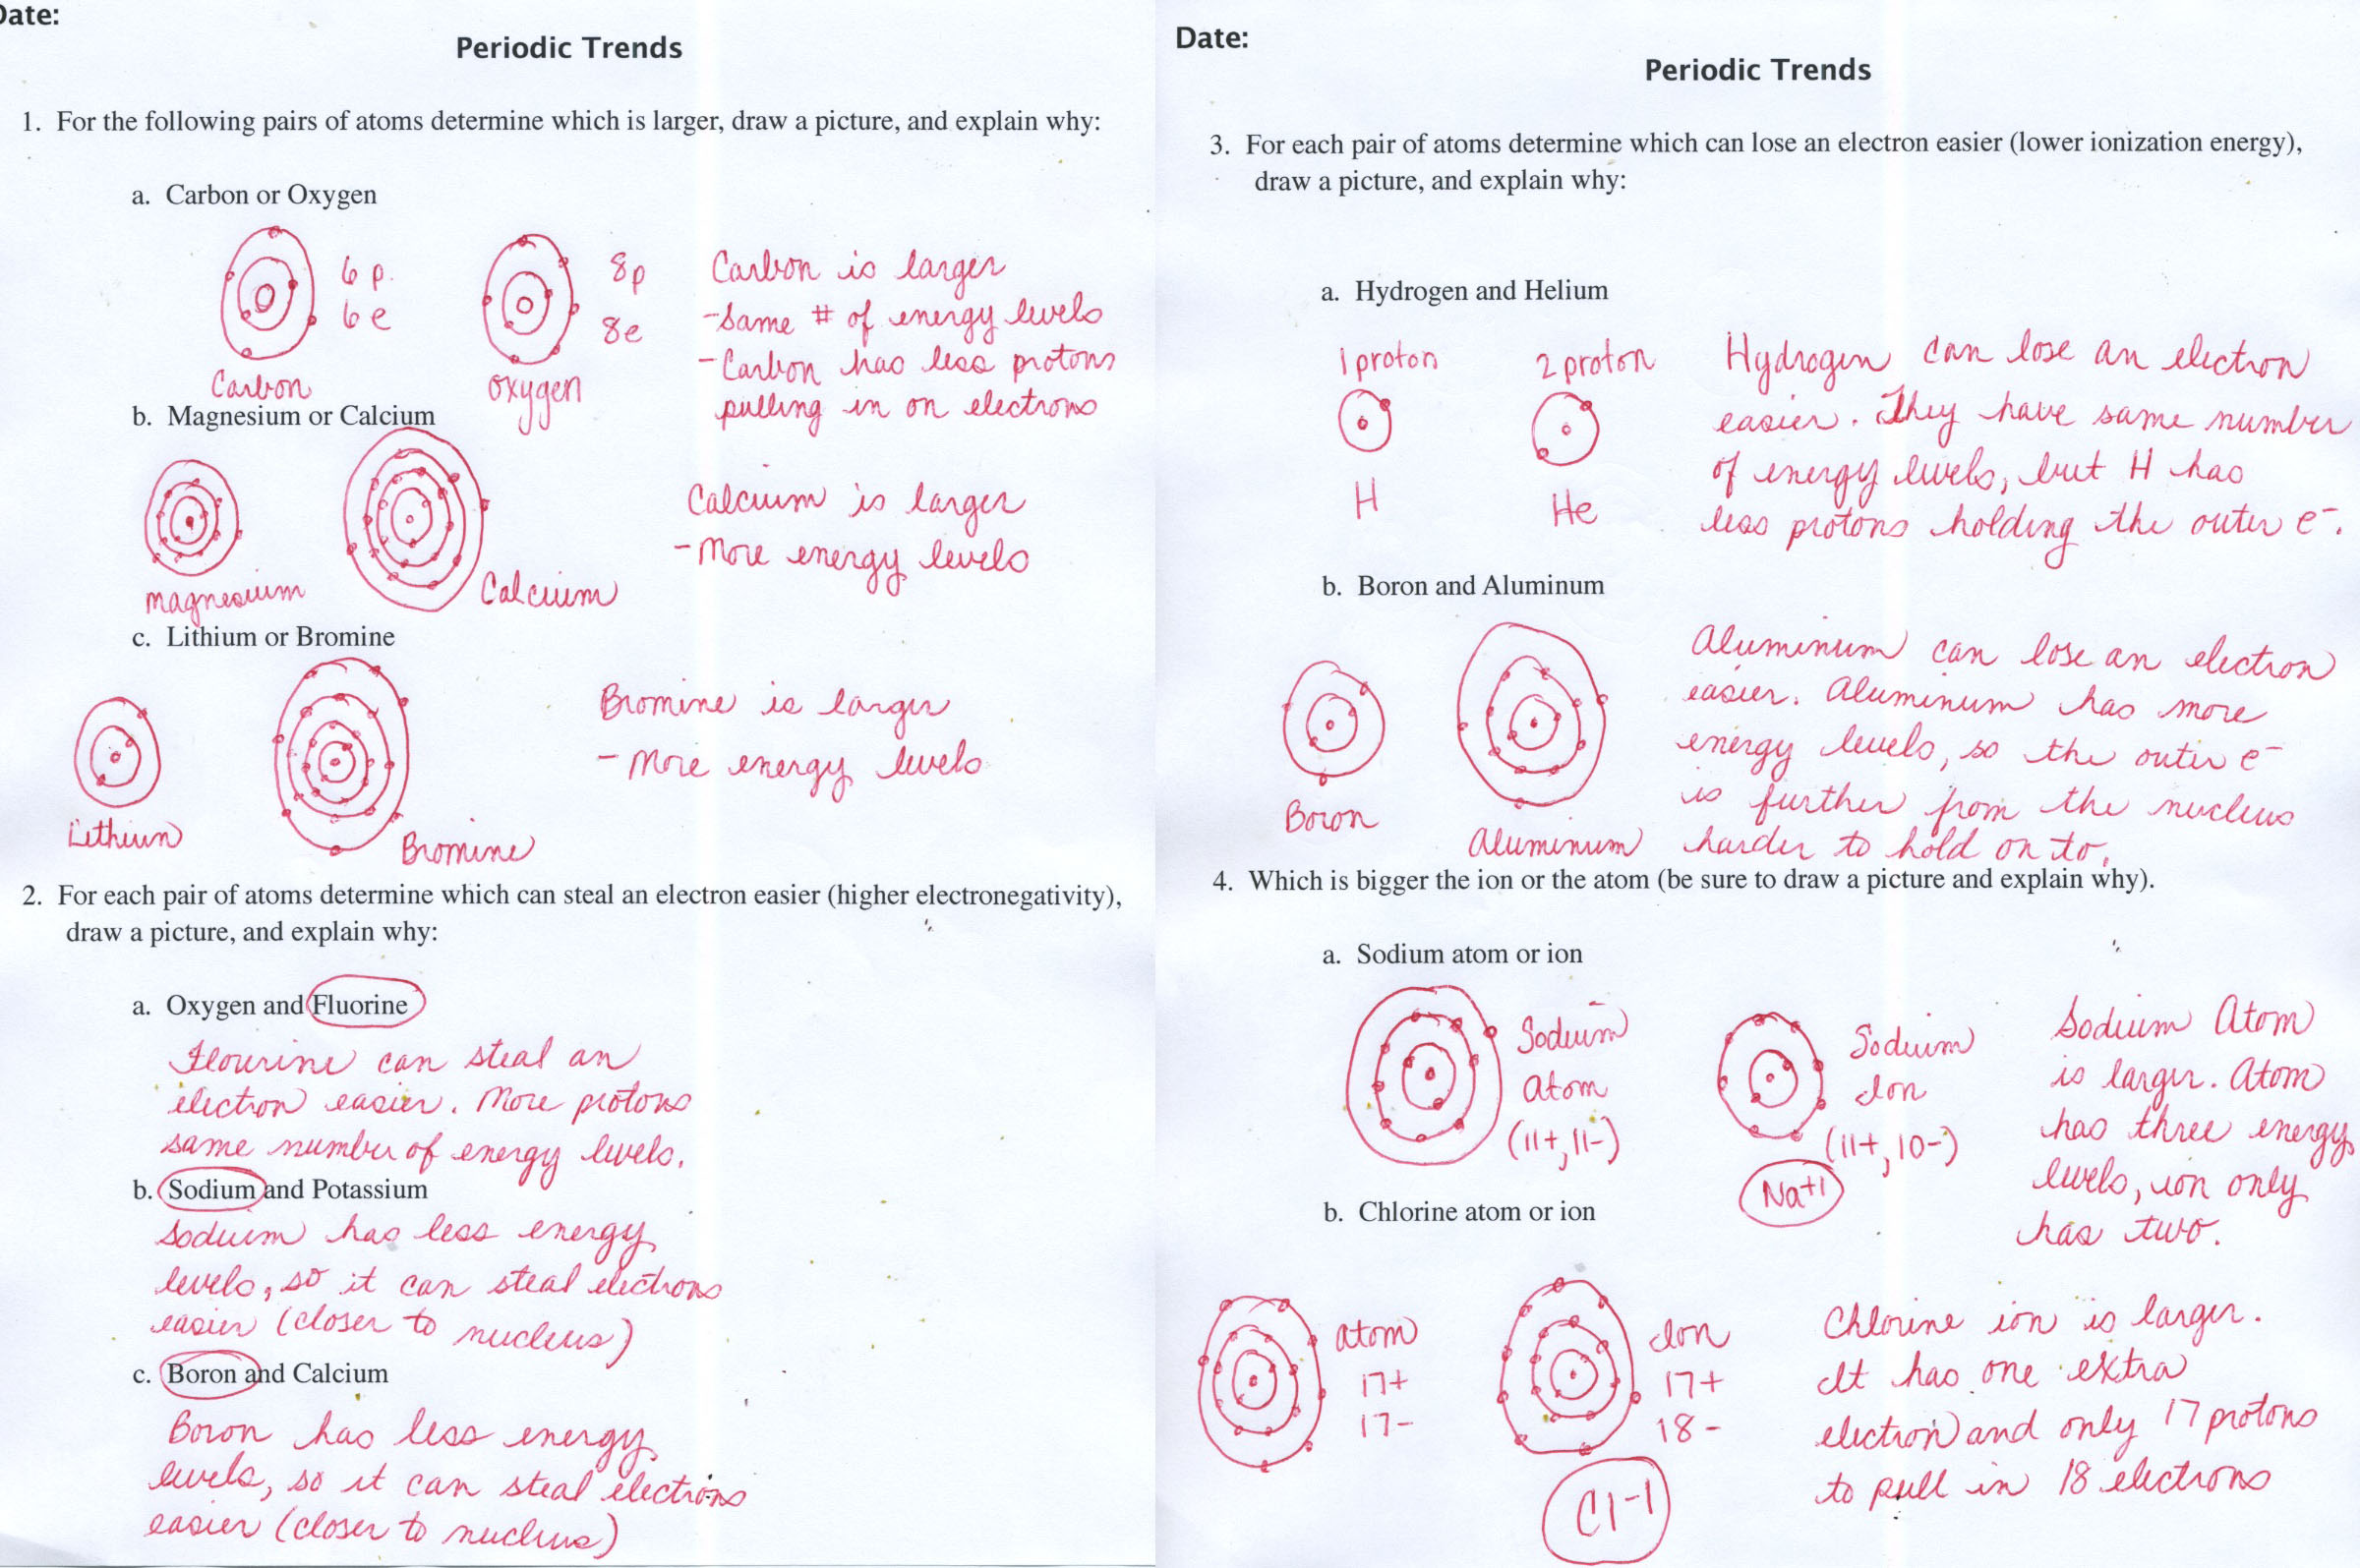 Date:
Periodic Trends
1. For the following pairs of atoms determine which is larger, draw a picture, and explain why:
a. Carbon or Oxygen
6 p.
6e
Carbon
8p
8e
oxygen
Carbon is larger
-Same # of energy levels
-Carbon has less protons
pulling in on electrons
b. Magnesium or Calcium
magnesium
Calcium
Calcium is larger
-More energy levels
c. Lithium or Bromine
Lithium
Bromine
Bromine is larger
- More energy levels
2. For each pair of atoms determine which can steal an electron easier (higher electronegativity),
draw a picture, and explain why:
a. Oxygen and Fluorine
Flourine can steal an
electron easier. More protons
same number of energy levels.
b. Sodium and Potassium
Sodium has less energy
levels, so it can steal electrons
easier (closer to nucleus)
c. Boron and Calcium
Boron has less energy
levels, so it can steal electrons
easier (closer to nucleus)
Date:
Periodic Trends
3. For each pair of atoms determine which can lose an electron easier (lower ionization energy),
draw a picture, and explain why:
a. Hydrogen and Helium
1 proton
H
2 proton
He
Hydrogen can lose an electron
easier. They have same number
of energy levels, but H has
less protons holding the outer e-.
b. Boron and Aluminum
Boron
Aluminum
Aluminum can lose an electron
easier. Aluminum has more
energy levels, so the outer e-
is further from the nucleus
harder to hold on to.
4. Which is bigger the ion or the atom (be sure to draw a picture and explain why).
a. Sodium atom or ion
Sodium
atom
(11+, 11-)
Sodium
Ion
(11+, 10-)
Na+1
Sodium Atom
is larger. Atom
has three energy
levels, ion only
has two.
b. Chlorine atom or ion
atom
17+
17-
Ion
17+
18-
Cl-1
Chlorine ion is larger.
It has one extra
electron and only 17 protons
to pull in 18 electrons